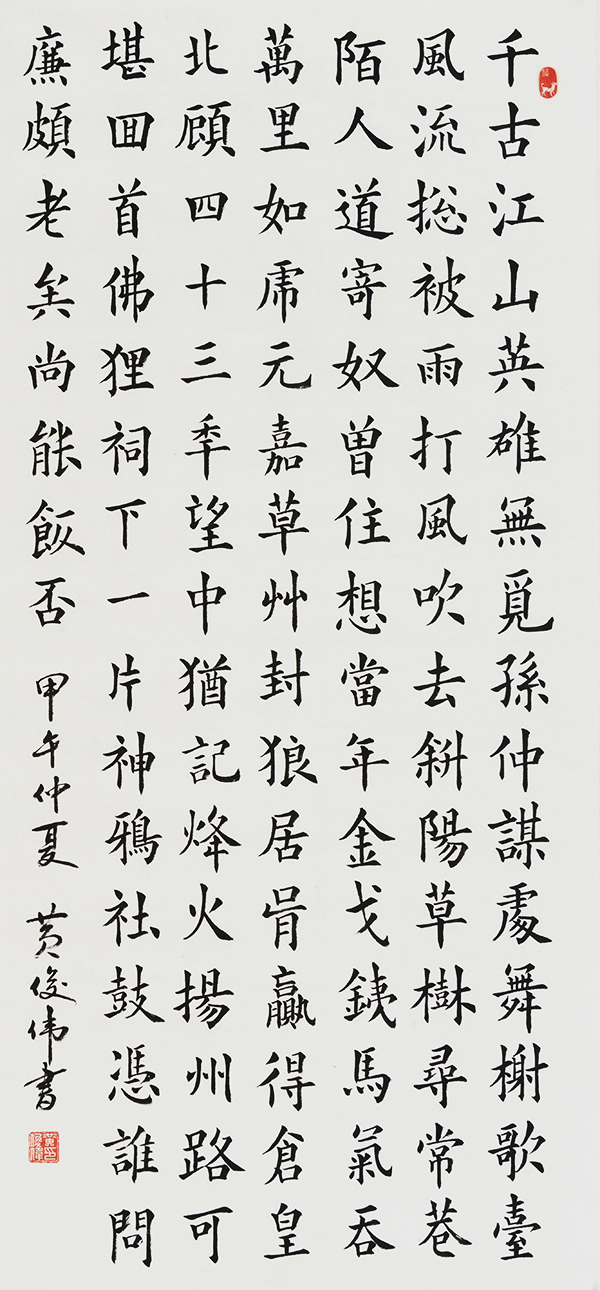 千古江山英雄無覓孫仲謀處舞榭歌臺
風流総被雨打風吹去斜陽草樹尋常巷
陌人道寄奴曽住想當年金戈銕馬氣吞
萬里如虎元嘉草艸封狼居胥贏得倉皇
北顧四十三年望中猶記烽火揚州路可
堪回首佛狸祠下一片神鴉社鼓憑誰問
廉頗老矣尚能飯否
甲午仲夏 黄俊伟書
黄俊偉印